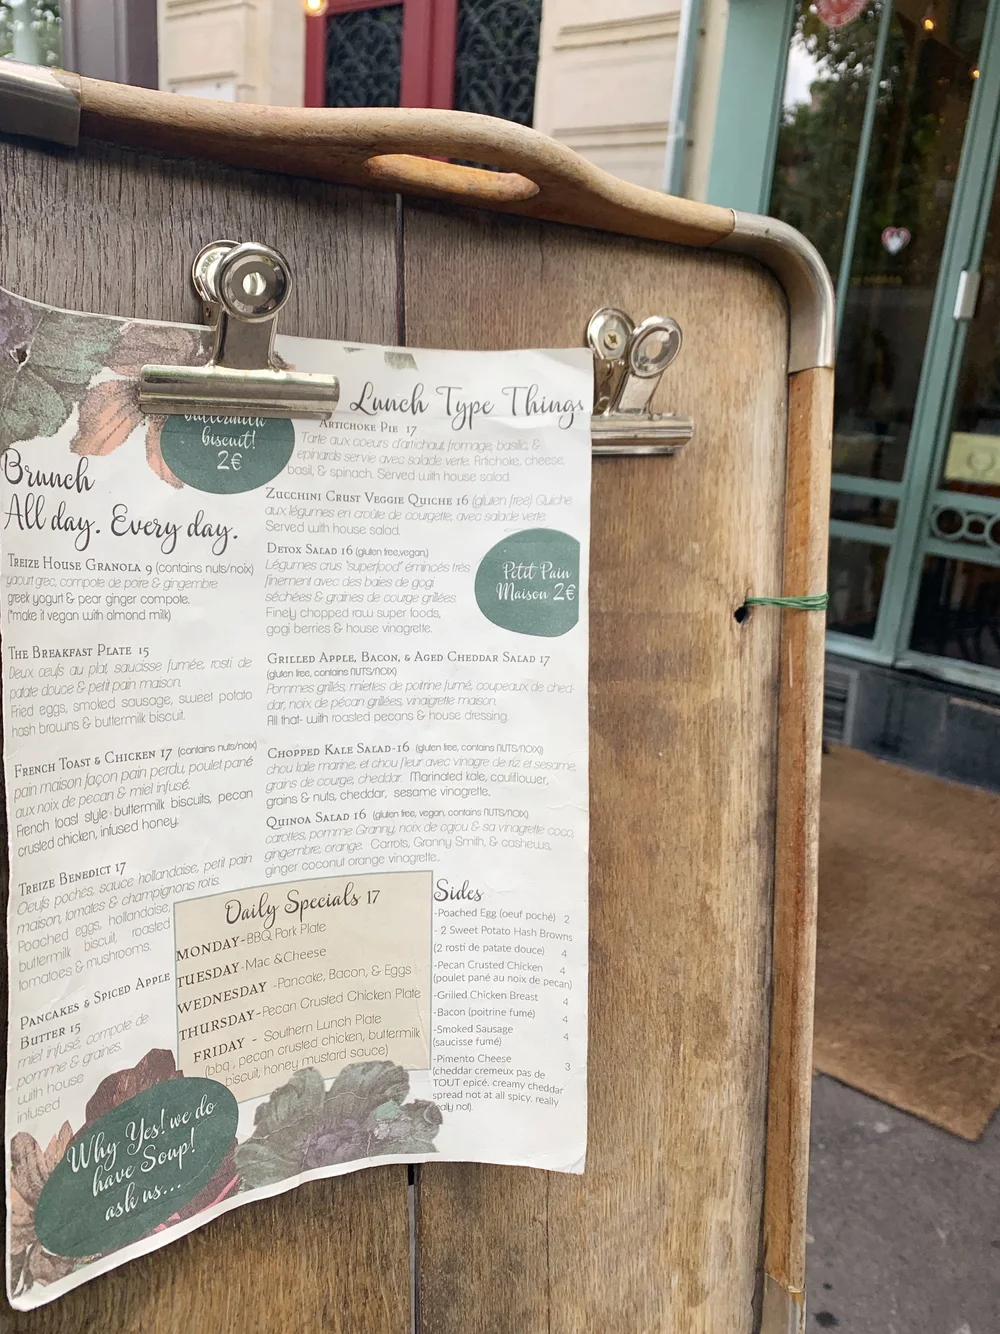 buttermilk
biscuit!
2€
Brunch
All day. Every day.
Treize House Granola 9 (contains nuts/noix)
yaourt grec, compote de poire & gingembre
greek yogurt & pear ginger compote.
(*make it vegan with almond milk)
The Breakfast Plate 15
Deux œufs au plat, saucisse fumée, rosti de
patate douce & petit pain maison.
Fried eggs, smoked sausage, sweet potato
hash browns & buttermilk biscuit.
French Toast & Chicken 17 (contains nuts/noix)
pain maison façon pain perdu, poulet pané
aux noix de pecan & miel infusé.
French toast style buttermilk biscuits, pecan
crusted chicken, infused honey.
Treize Benedict 17
Oeufs poches, sauce hollandaise, petit pain
maison, tomates & champignons rotis.
Poached eggs, hollandaise,
buttermilk biscuit, roasted
tomatoes & mushrooms.
Pancakes & Spiced Apple
Butter 15
miel infusé, compote de
pomme & graines.
with house
infused
Why Yes! we do
have Soup!
ask us...
Lunch Type Things
Artichoke Pie 17
Tarte aux coeurs d'artichaut, fromage, basilic, &
épinards servie avec salade verte. Artichoke, cheese,
basil, & spinach. Served with house salad.
Zucchini Crust Veggie Quiche 16 (gluten free) Quiche
aux légumes en croûte de courgette, avec salade verte.
Served with house salad.
Detox Salad 16 (gluten free,vegan)
Légumes crus "superfood" émincés très
finement avec des baies de gogi
séchées & graines de courge grillées.
Finely chopped raw super foods,
gogi berries & house vinagrette.
Petit Pain
Maison 2€
Grilled Apple, Bacon, & Aged Cheddar Salad 17
(gluten free, contains NUTS/NOIX)
Pommes grillés, miettes de poitrine fumé, coupeaux de ched-
dar, noix de pécan grillées, vinaigrette maison.
All that- with roasted pecans & house dressing.
Chopped Kale Salad-16 (gluten free, contains NUTS/NOIX))
chou kale marine, et chou fleur avec vinagre de riz et sesame,
grains de courge, cheddar. Marinated kale, cauliflower,
grains & nuts, cheddar, sesame vinagrette.
Quinoa Salad 16 (gluten free, vegan, contains NUTS/NOIX)
carottes, pomme Granny, noix de cajou & sa vinagrette coco,
gingembre, orange. Carrots, Granny Smith, & cashews,
ginger coconut orange vinagrette.
Daily Specials 17
MONDAY-BBQ Pork Plate
TUESDAY-Mac &Cheese
WEDNESDAY -Pancake, Bacon, & Eggs
THURSDAY-Pecan Crusted Chicken Plate
FRIDAY - Southern Lunch Plate
(bbq , pecan crusted chicken, buttermilk
biscuit, honey mustard sauce)
Sides
-Poached Egg (oeuf poché) 2
- 2 Sweet Potato Hash Browns
(2 rosti de patate douce) 4
-Pecan Crusted Chicken 4
(poulet pané au noix de pecan)
-Grilled Chicken Breast 4
-Bacon (poitrine fumé) 4
-Smoked Sausage 4
(saucisse fumé)
-Pimento Cheese 3
(cheddar cremeux pas de
TOUT epicé. creamy cheddar
spread not at all spicy. really
not).